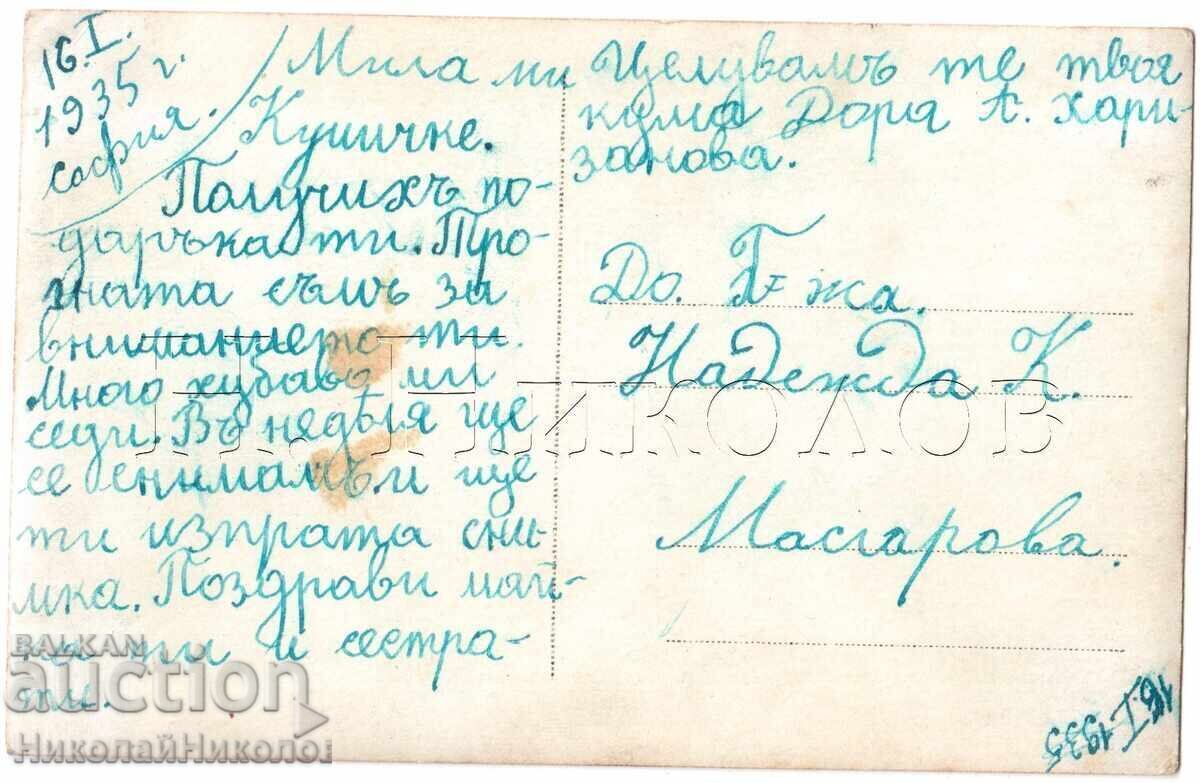 16.I.
1935 г.
София.
Мила ми
Кумичке.
Получихъ по-
даръка ти. Тро-
гната съмъ за
вниманието ти.
Много хубаво ми
седи. Въ недѣля ще
се снимамъ и ще
ти изпратя сни-
мка. Поздрави май-
ка ти и сестра-
ти.
Целувамъ те твоя
кума Дора А. Хари-
занова.
До. Г-жа.
Надежда К.
Масларова.
16.I-1935
Н. НИКОЛОВ
BALKAN
auction
НиколайНиколов